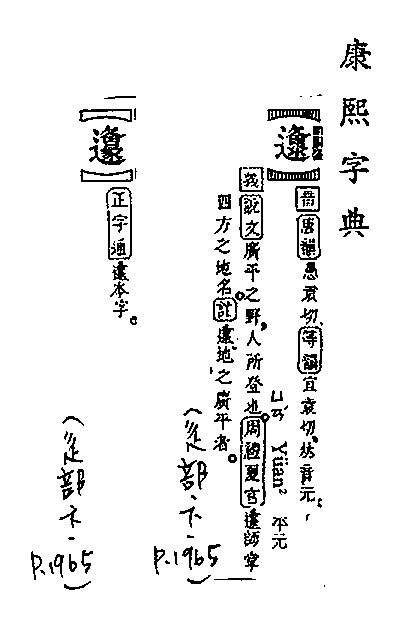 康熙字典
邍
音 唐韻 愚袁切、等韻 宜袁切、𠀤音元。
ㄩㄢˊ Yüan² 平元
義 說文 廣平之野,人所登也。周禮夏官 邍師掌
四方之地名。註 邍,地之廣平者。
(辵部·下·
P.1965)
正字通 邍本字。
(辵部·下·
P.1965)